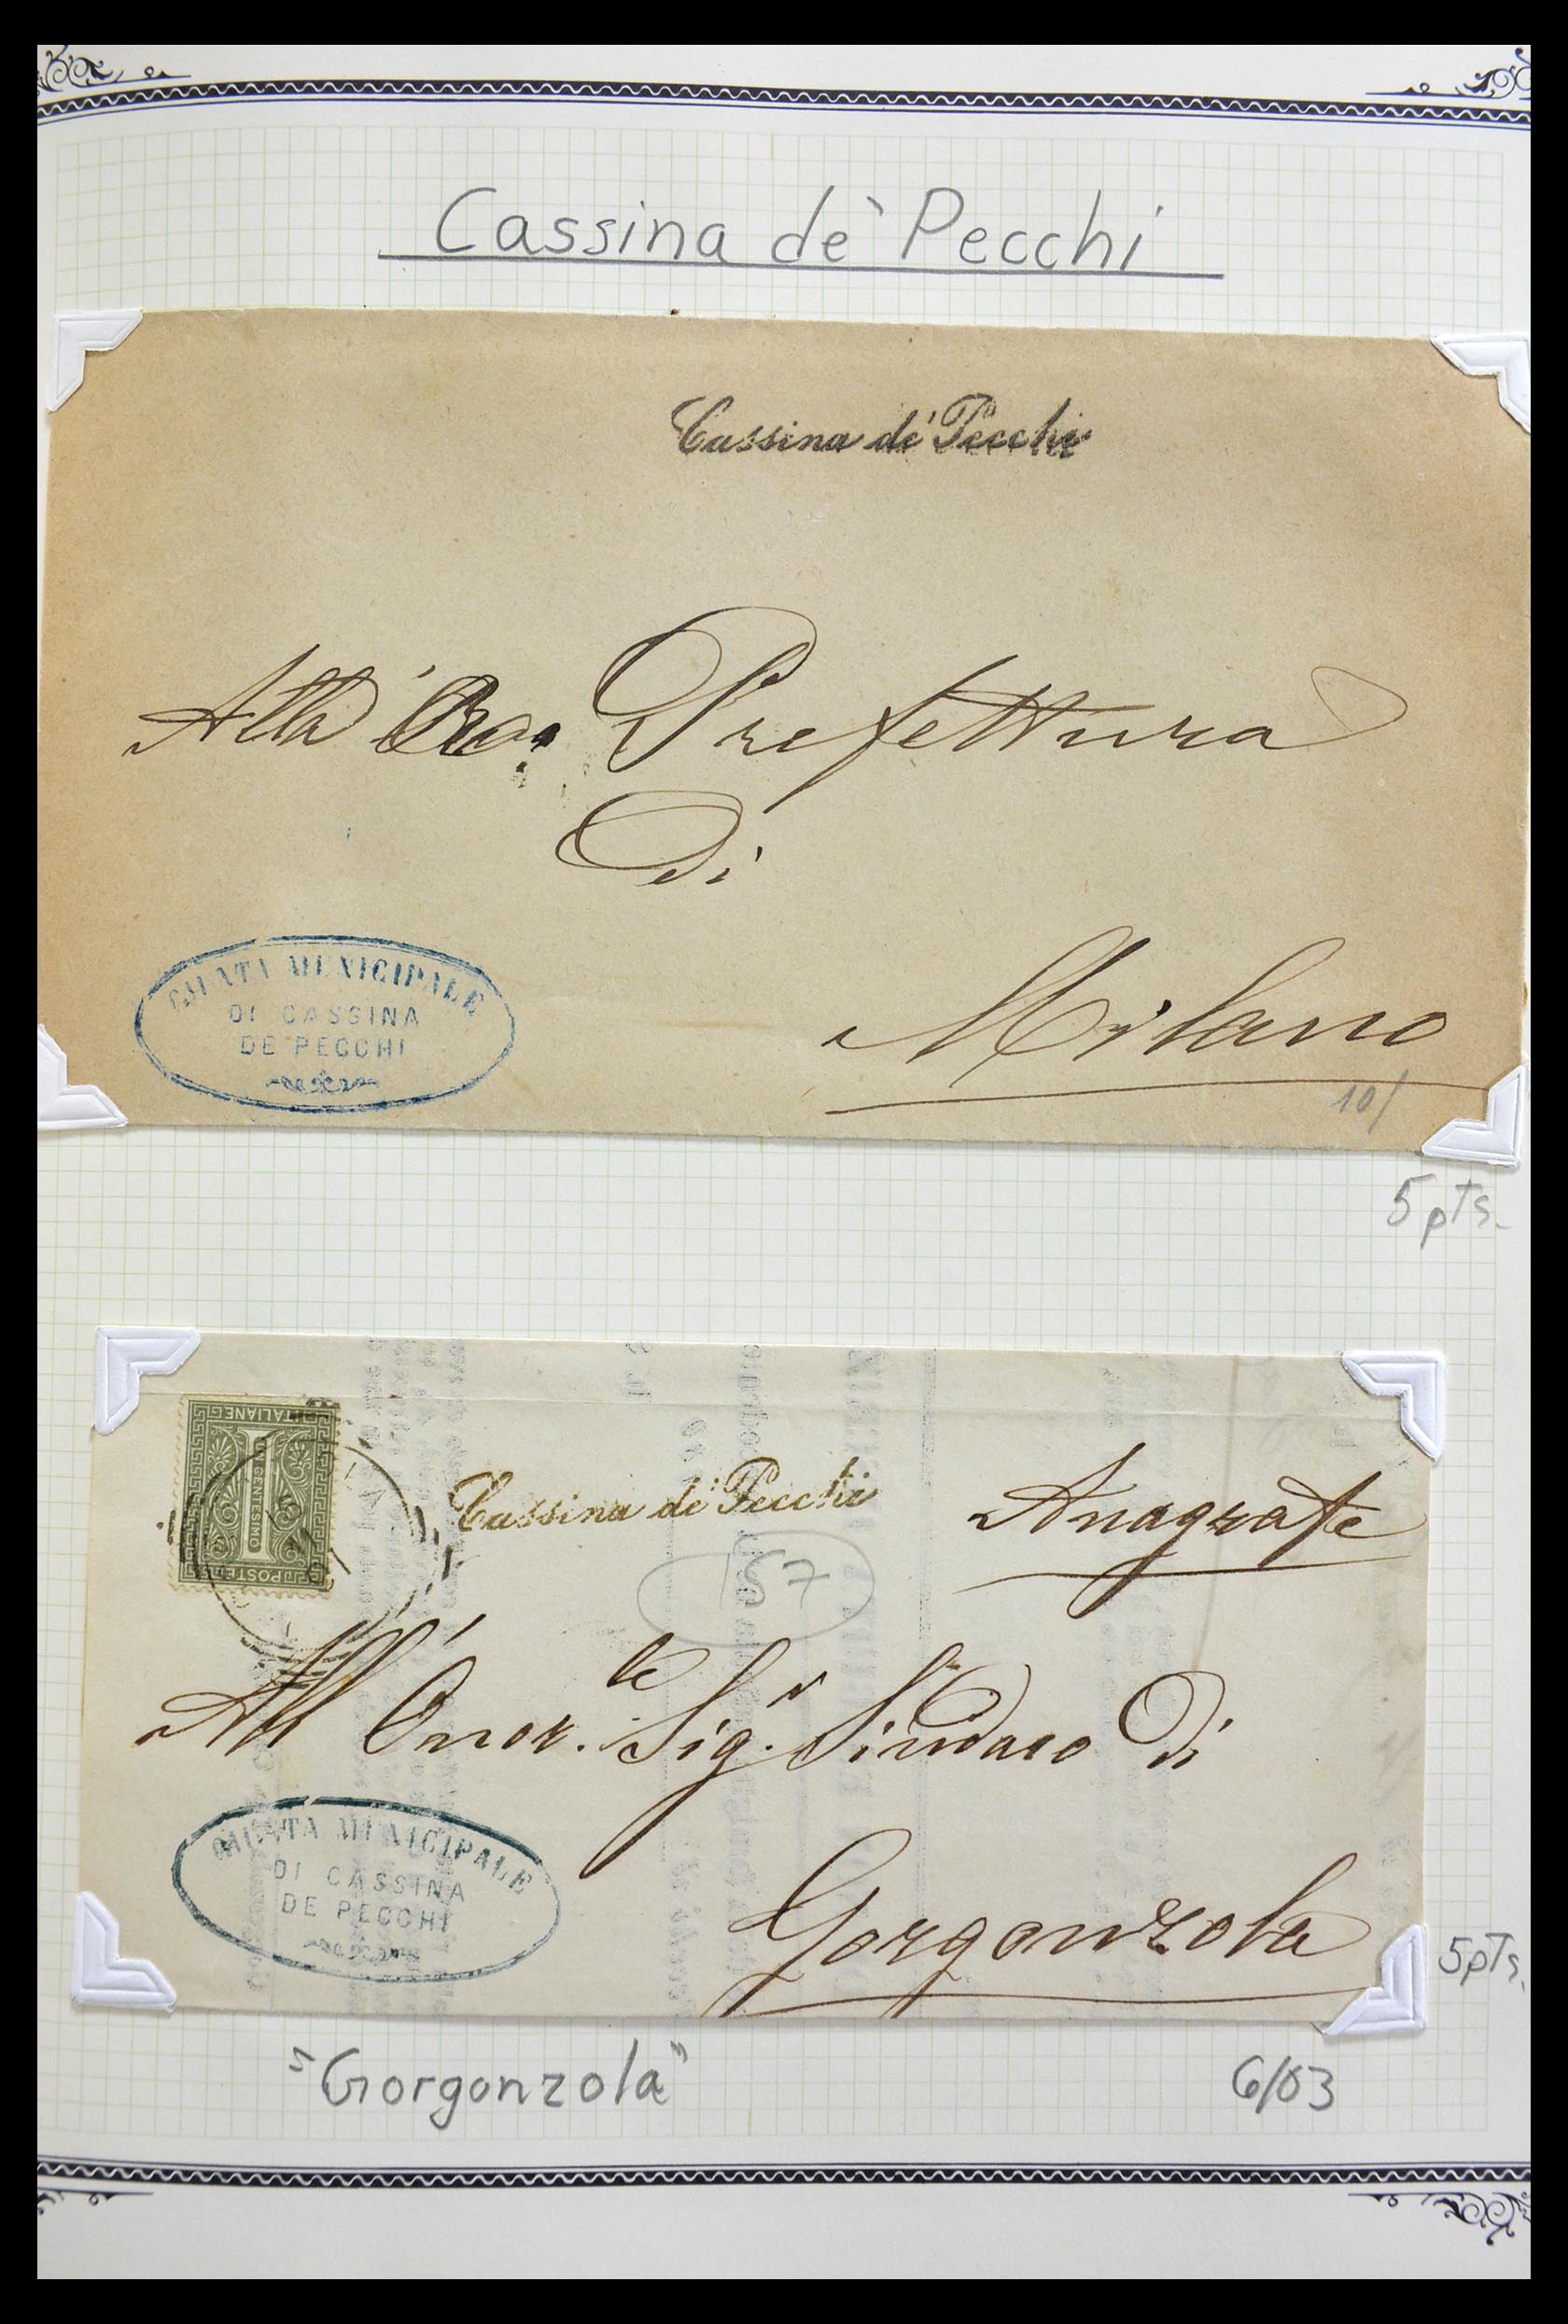 Cassina dè Pecchi
Cassina de' Pecchi
Alla Ra. Prefettura
Di
Milano
GIUNTA MUNICIPALE
DI CASSINA
DE PECCHI
10/
5 pts.
POSTE ITALIANE
1
UN CENTESIMO
Cassina de' Pecchi
Anagrafe
157
All' Onor.le Sig.r Sindaco Di
Gorgonzola
GIUNTA MUNICIPALE
DI CASSINA
DE PECCHI
5pts.
"Gorgonzola"
6/03